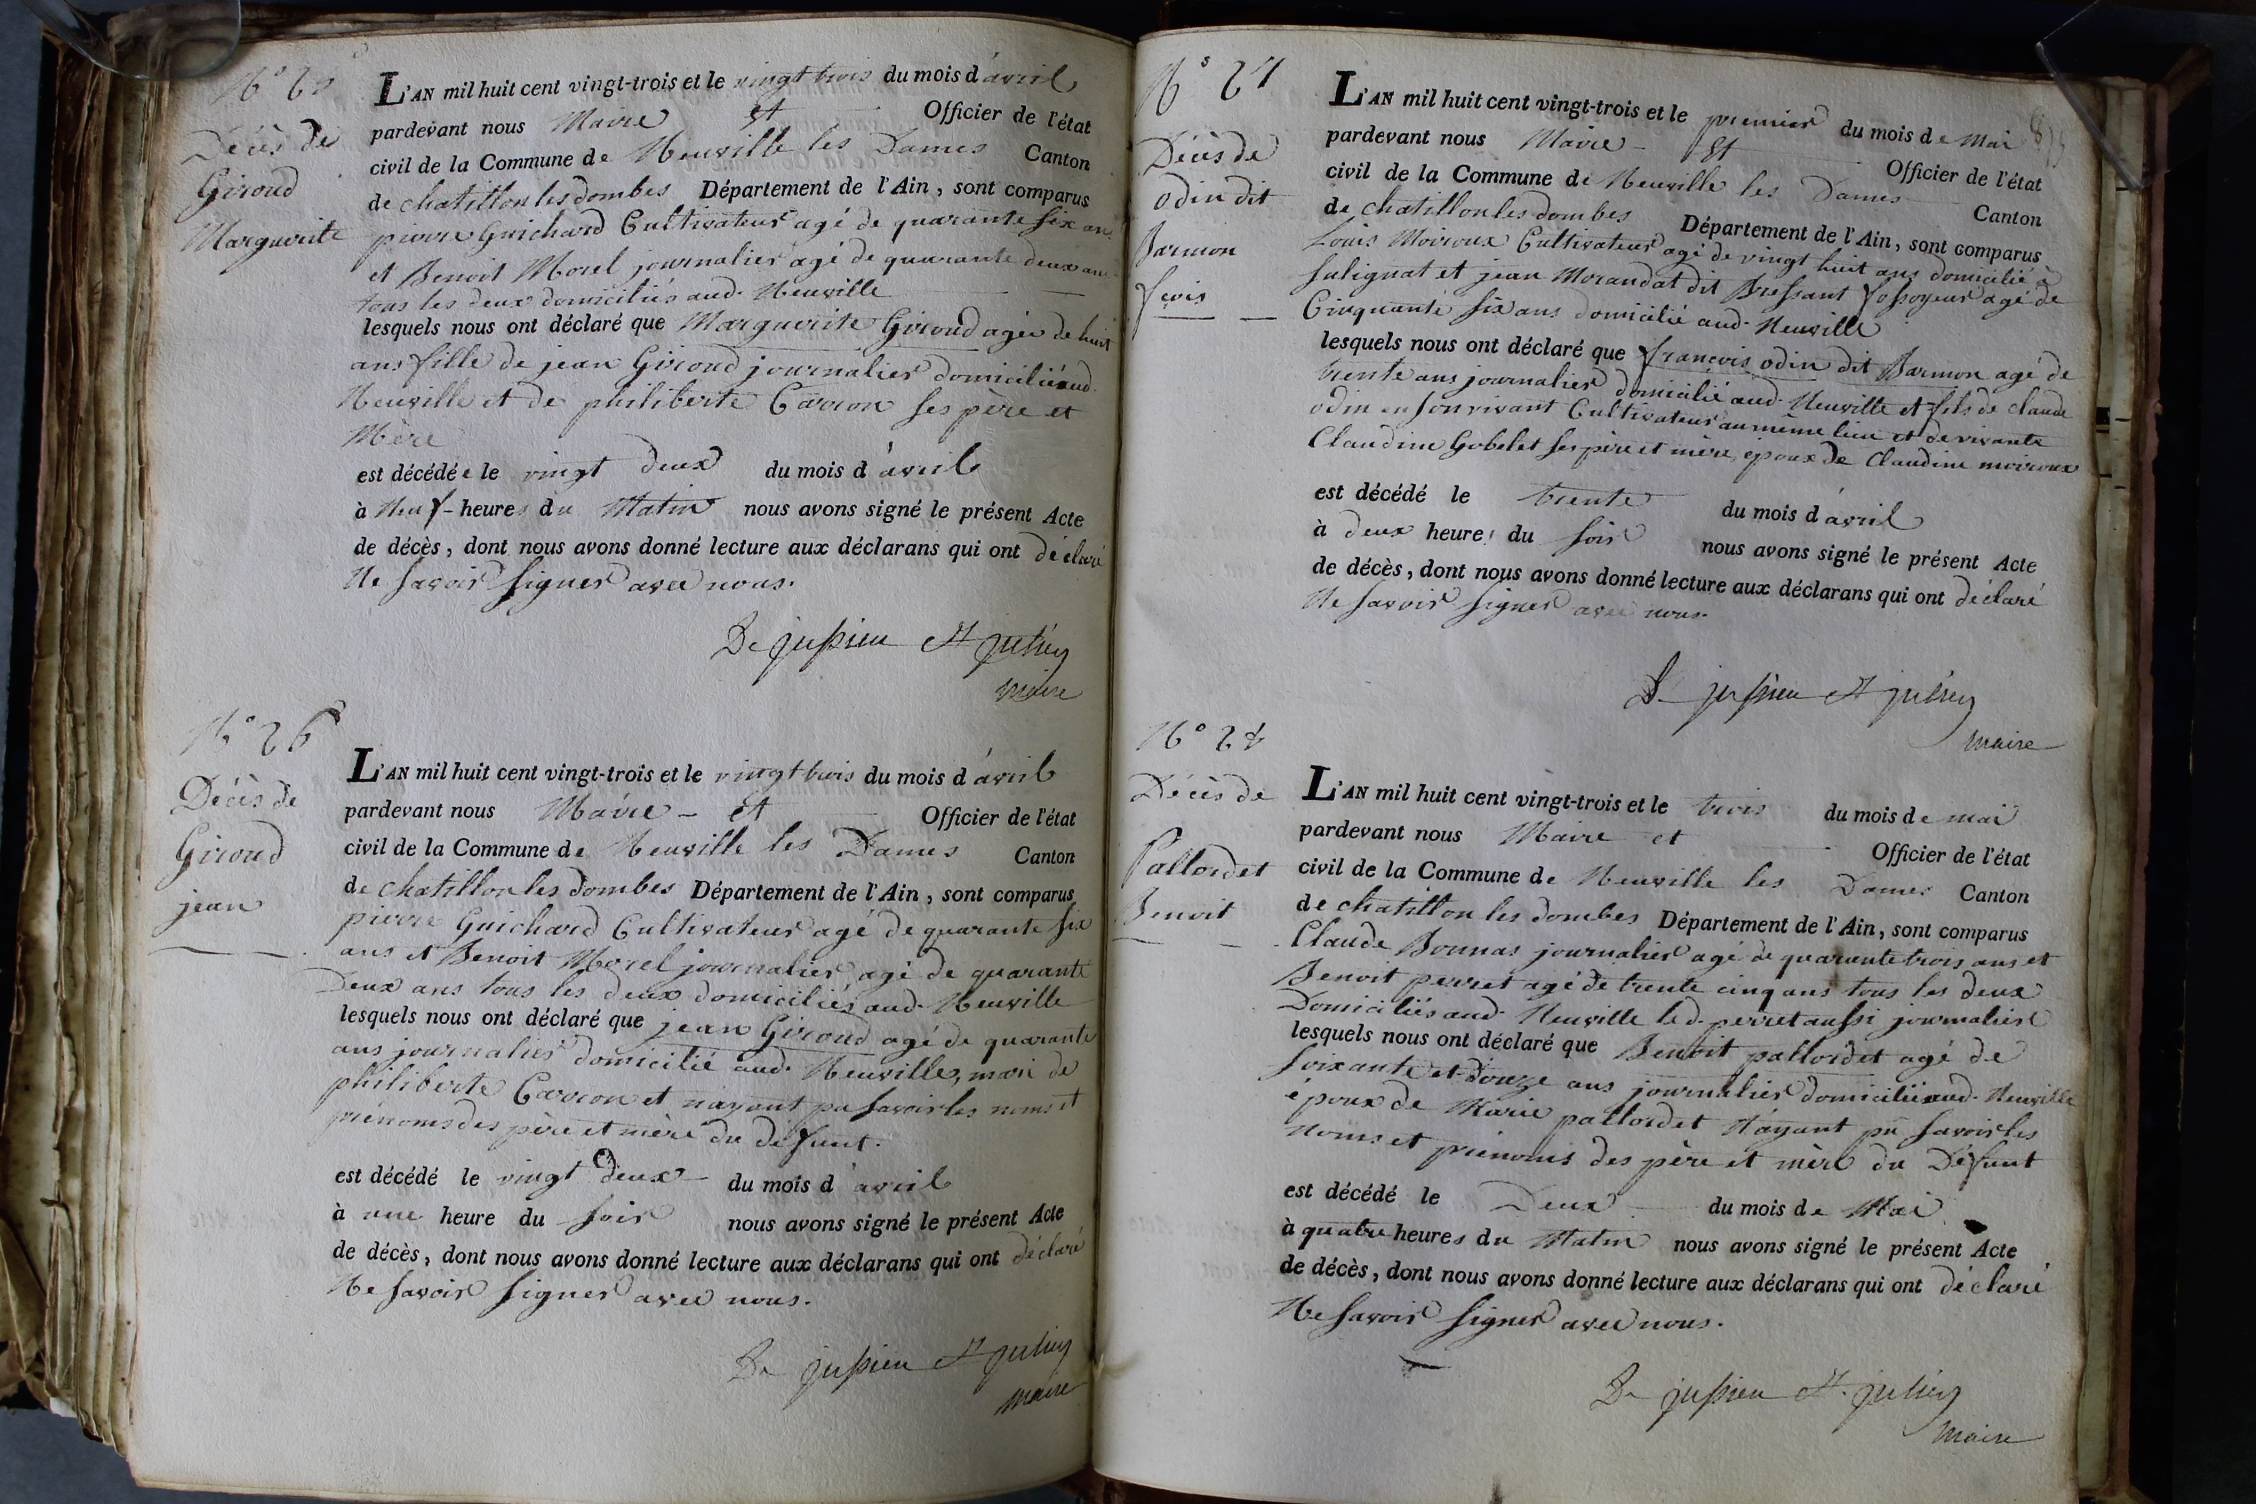 N° 25
Décès de
Giroud
Marguerite
L'AN mil huit cent vingt-trois et le vingt trois du mois d'avril
pardevant nous Maire et Officier de l'état
civil de la Commune de Neuville les Dames Canton
de chatillon les dombes Département de l'Ain, sont comparus
pierre Guichard Cultivateur agé de quarante six ans
et Benoit Morel journalier agé de quarante deux ans
tous les deux domiciliés aud. Neuville
lesquels nous ont déclaré que Marguerite Giroud agée de huit
ans fille de jean Giroud journalier domicilié aud.
Neuville et de philiberte Carron ses père et
Mère
est décédée le vingt deux du mois d'avril
à Neuf heures du Matin nous avons signé le présent Acte
de décès, dont nous avons donné lecture aux déclarans qui ont déclaré
Ne savoir signer avec nous.
De jussieu St julien
maire
N° 26
Décès de
Giroud
jean
L'AN mil huit cent vingt-trois et le vingt trois du mois d'avril
pardevant nous Maire - et Officier de l'état
civil de la Commune de Neuville les Dames Canton
de chatillon les dombes Département de l'Ain, sont comparus
pierre Guichard Cultivateur agé de quarante six
ans et Benoit Morel journalier agé de quarante
Deux ans tous les deux domiciliés aud. Neuville
lesquels nous ont déclaré que jean Giroud agé de quarante
ans journalier domicilié aud. Neuville, mari de
philiberte Carron et nayant pu savoir les noms et
prénoms des père et mère du défunt.
est décédé le vingt deux du mois d'avril
à une heure du soir nous avons signé le présent Acte
de décès, dont nous avons donné lecture aux déclarans qui ont déclaré
Ne savoir signer avec nous.
De jussieu St julien
maire
N° 27
Décès de
odin dit
Barmon
fçois
L'AN mil huit cent vingt-trois et le premier du mois de mai
pardevant nous Maire - Et Officier de l'état
civil de la Commune de Neuville les Dames Canton
de chatillon les dombes Département de l'Ain, sont comparus
Louis Moiroux Cultivateur agé de vingt huit ans domicilié à
Sulignat et jean Morandat dit Bressant fossoyeur agé de
Cinquante six ans domicilié aud. Neuville
lesquels nous ont déclaré que françois odin dit Barmon agé de
trente ans journalier domicilié aud. Neuville et fils de claude
odin en son vivant Cultivateur au même lieu et de vivante
Claudine Gobelet ses père et mère, époux de Claudine moiroux
est décédé le trente du mois d'avril
à deux heures du soir nous avons signé le présent Acte
de décès, dont nous avons donné lecture aux déclarans qui ont déclaré
Ne savoir signer avec nous.
De jussieu St julien
maire
N° 28
Décès de
Pallordet
Benoit
L'AN mil huit cent vingt-trois et le trois du mois de mai
pardevant nous Maire et Officier de l'état
civil de la Commune de Neuville les Dames Canton
de chatillon les dombes Département de l'Ain, sont comparus
Claude Bonnas journalier agé de quarante trois ans et
Benoit perret agé de trente cinq ans tous les deux
Domiciliés aud. Neuville led. perret aussi journalier
lesquels nous ont déclaré que Benoit pallordet agé de
soixante et douze ans journalier domicilié aud. Neuville
époux de Marie pallordet N'ayant pu savoir les
noms et prénoms des père et mère du Défunt
est décédé le Deux du mois de Mai
à quatre heures du Matin nous avons signé le présent Acte
de décès, dont nous avons donné lecture aux déclarans qui ont déclaré
Ne savoir signer avec nous.
De jussieu St. julien
maire